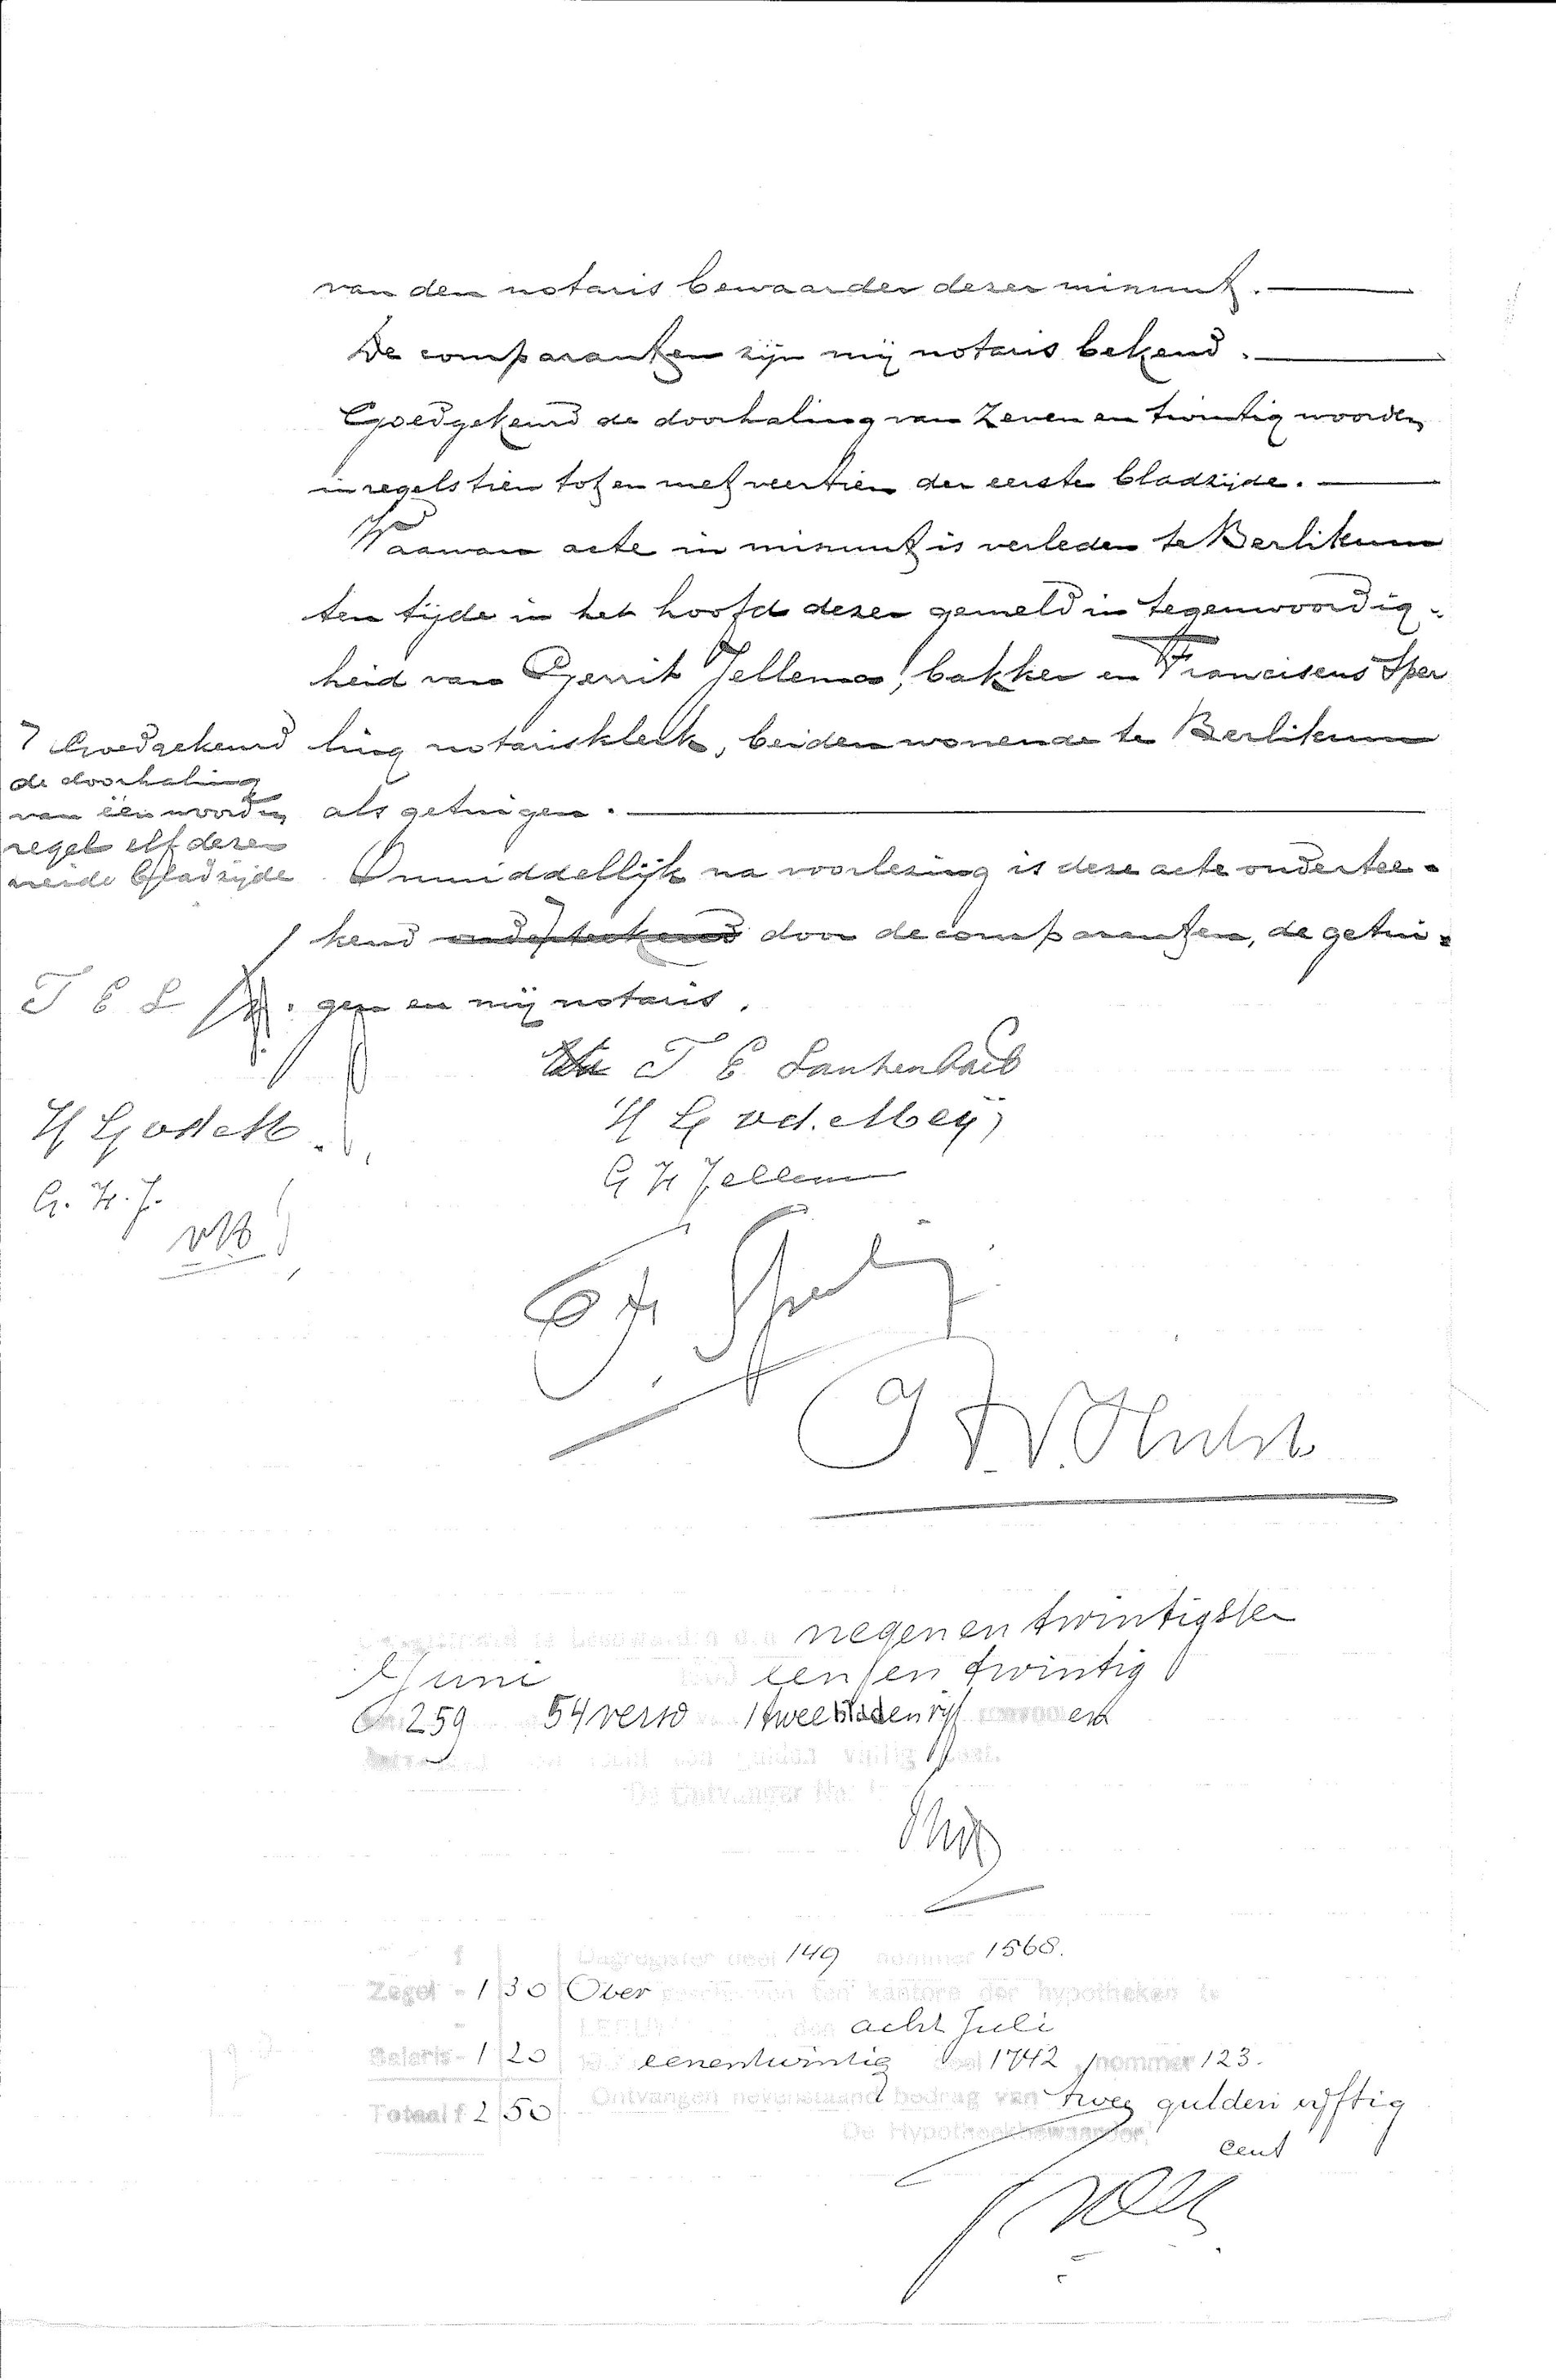 van den notaris bewaarder dezer minuut.
De comparanten zijn mij notaris bekend.
Goedgekeurd de doorhaling van zeven en twintig woorden
in regels tien tot en met veertien der eerste bladzijde.
Waarvan acte in minuut is verleden te Berlikum
ten tijde in het hoofd dezer gemeld in tegenwoordig-
heid van Gerrit Jellema, bakker en Franciscus Sper
ling notarisklerk, beiden wonende te Berlikum
als getuigen.
Onmiddellijk na voorlezing is deze acte ondertee-
kend onderteekend door de comparanten, de getui-
gen en mij notaris.
Goedgekeurd
de doorhaling
van één woord in
regel elf dezer
bladzijde
T E L
H G vd M
G. H. J.
T E Lautenbach
H G vd. Meij
G H Jellema
negenentwintigsten
Juni eenentwintig
259 54 verso twee bladen een
gulden vijftig cent.
De Ontvanger No. 1
Dagregister deel 149 nommer 1568.
Zegel - 1 30 Over geschreven ten kantore der hypotheken te
LEEUW den acht Juli
Salaris - 1 20 eenentwintig deel 1742, nommer 123.
Totaal f 2 50 Ontvangen nevenstaand bedrag van twee gulden vijftig
cent
De Hypotheekbewaarder,